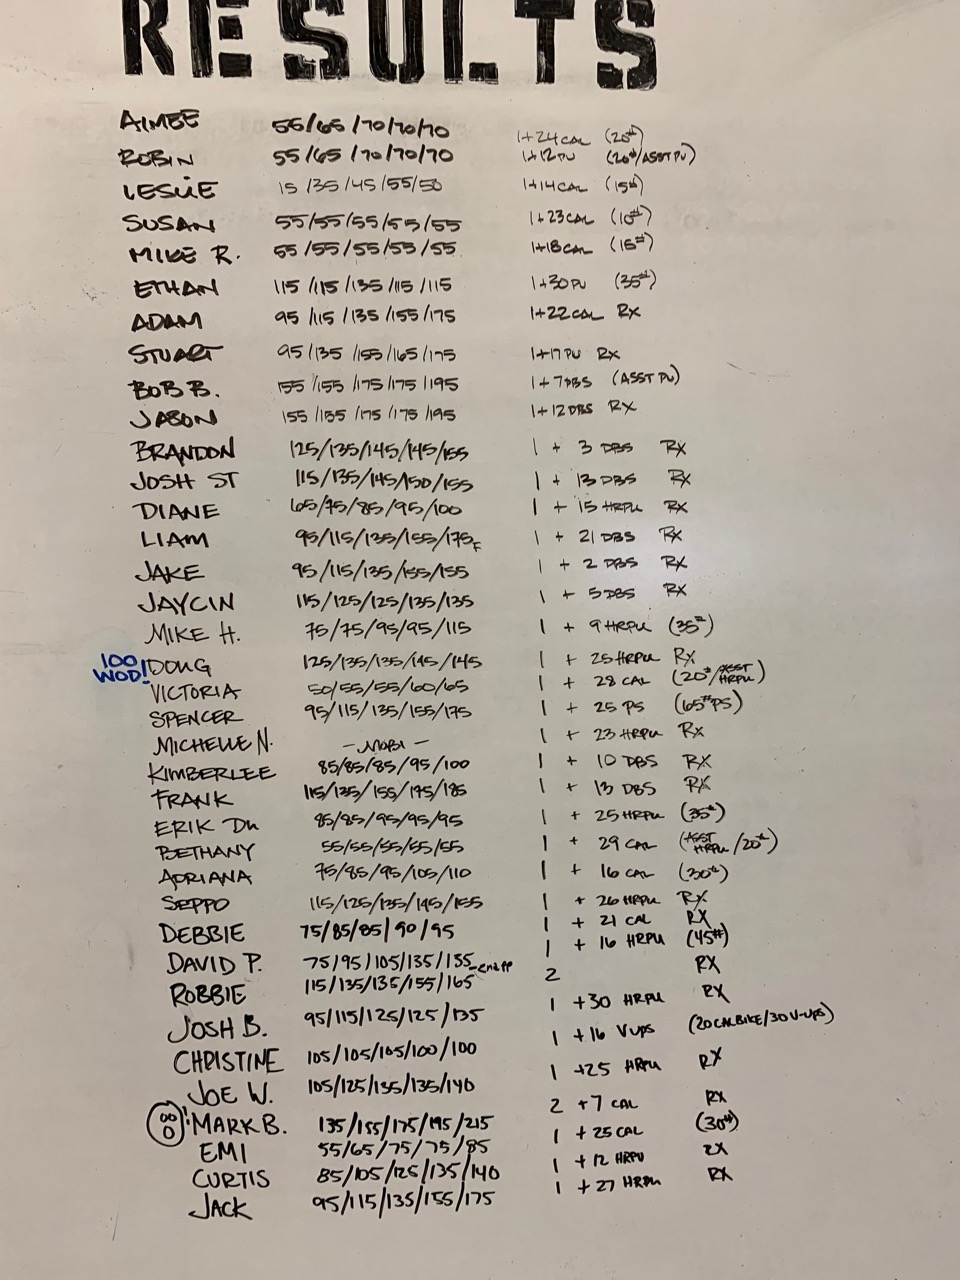 RESULTS
AIMEE 55/65/70/70/70 1+24CAL (20#)
ROBIN 55/65/70/70/70 1+12PU (20#/ASST PU)
LESLIE 15/35/45/55/50 1+14CAL (15#)
SUSAN 55/55/55/55/55 1+23CAL (10#)
MIKE R. 55/55/55/55/55 1+18CAL (15#)
ETHAN 115/115/135/115/115 1+30PU (35#)
ADAM 95/115/135/155/175 1+22CAL RX
STUART 95/135/155/165/175 1+17PU RX
BOB B. 155/155/175/175/195 1+7DBS (ASST PU)
JASON 155/155/175/175/195 1+12DBS RX
BRANDON 125/135/145/145/155 1 + 3 DBS RX
JOSH ST 115/135/145/150/155 1 + 13 DBS RX
DIANE 65/75/85/95/100 1 + 15 HRPU RX
LIAM 95/115/135/155/175F 1 + 21 DBS RX
JAKE 95/115/135/155/155 1 + 2 DBS RX
JAYCIN 115/125/125/135/135 1 + 5 DBS RX
MIKE H. 75/75/95/95/115 1 + 9 HRPU (35#)
100 WOD! DOUG 125/135/135/145/145 1 + 25 HRPU RX
VICTORIA 50/55/55/60/65 1 + 28 CAL (20#/ASST HRPU)
SPENCER 95/115/135/155/175 1 + 25 PS (65#PS)
MICHELLE N. - MOBI - 1 + 23 HRPU RX
KIMBERLEE 85/85/85/95/100 1 + 10 DBS RX
FRANK 115/135/155/175/185 1 + 13 DBS RX
ERIK DU 85/85/95/95/95 1 + 25 HRPU (35#)
BETHANY 55/55/55/55/55 1 + 29 CAL (ASST HRPU/20#)
ADRIANA 75/85/95/105/110 1 + 16 CAL (30#)
SEPPO 115/125/135/145/155 1 + 26 HRPU RX
DEBBIE 75/85/85/90/95 1 + 21 CAL RX
DAVID P. 75/95/105/135/155 1 + 16 HRPU (45#)
ROBBIE 115/135/135/155/165 2 RX
JOSH B. 95/115/125/125/135 1 +30 HRPU RX
CHRISTINE 105/105/105/100/100 1 +16 Vups (20CALBIKE/30V-UPS)
JOE W. 105/125/135/135/140 1 +25 HRPU RX
MARK B. 135/155/175/195/215 2 +7 CAL RX
EMI 55/65/75/75/85 1 +25CAL (30#)
CURTIS 85/105/125/135/140 1 +12 HRPU RX
JACK 95/115/135/155/175 1 +27 HRPU RX